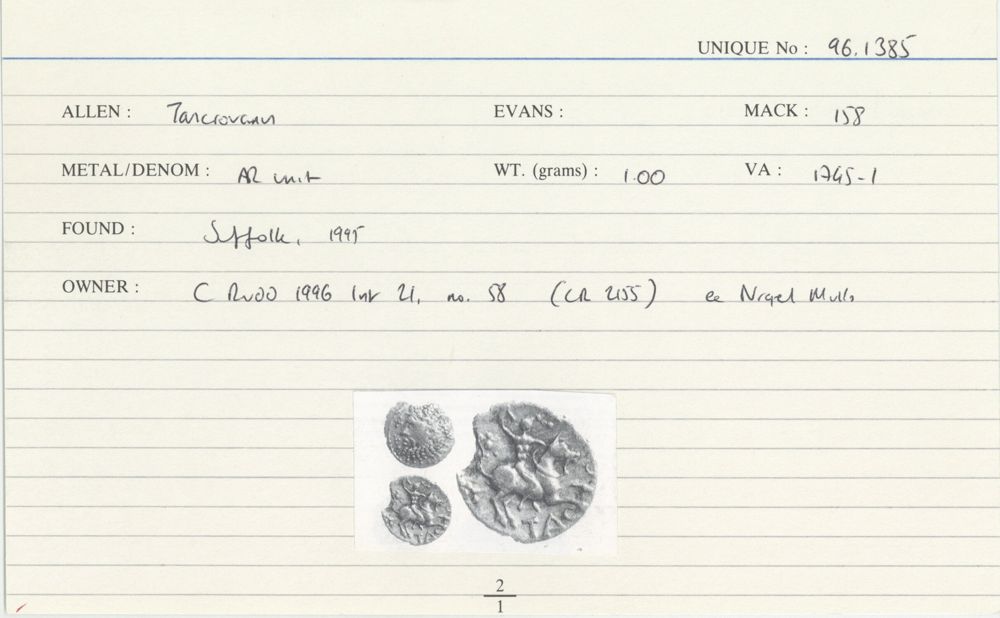 UNIQUE No : 96.1385
ALLEN : Tasciovanus EVANS : MACK : 158
METAL/DENOM : AR unit WT. (grams) : 1.00 VA : 1745-1
FOUND : Suffolk, 1995
OWNER : C Rudd 1996 list 21, no. 58 (CR 2155) ex Nigel Mills
TASC
2
1